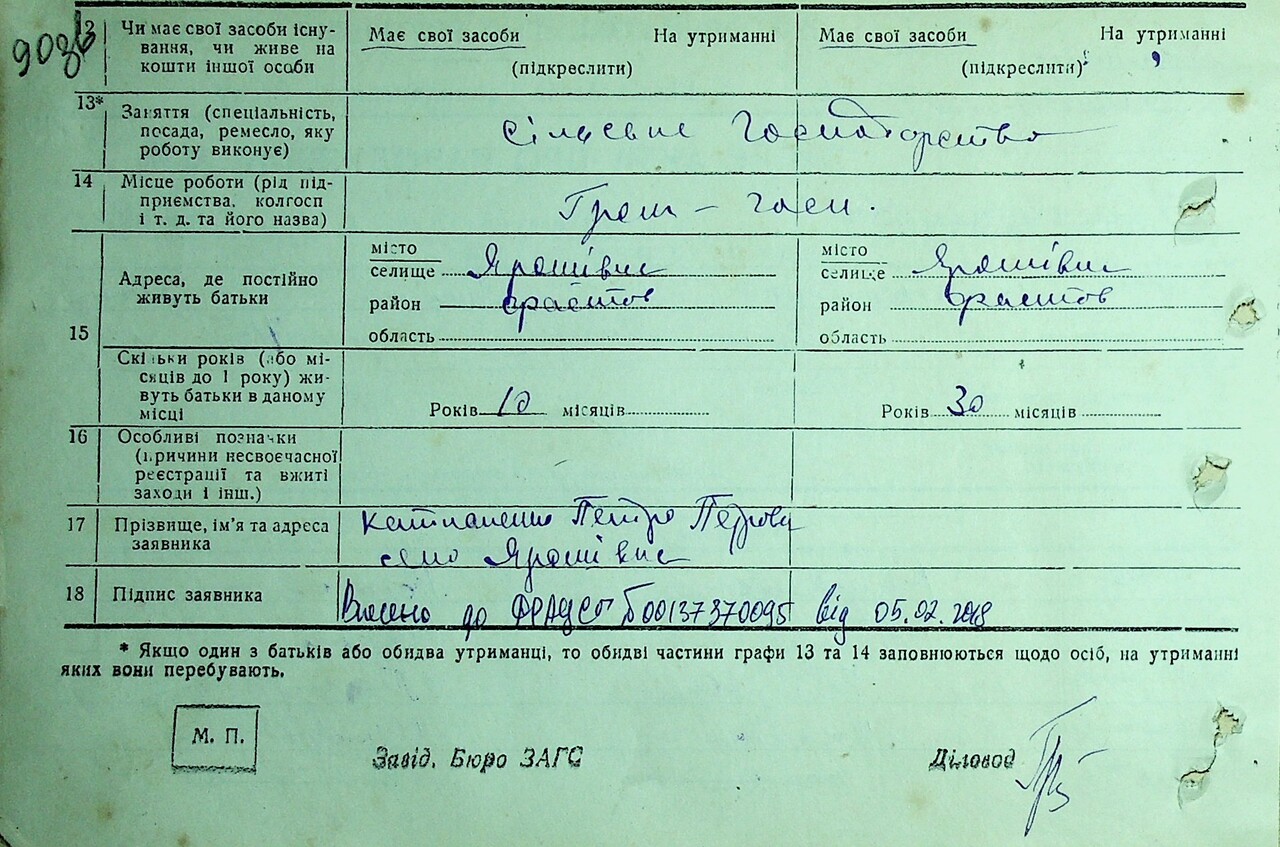 903
12 Чи має свої засоби існу-
вання, чи живе на
кошти іншої особи
Має свої засоби На утриманні
(підкреслити)
Має свої засоби На утриманні
(підкреслити)
13* Заняття (спеціальність,
посада, ремесло, яку
роботу виконує)
Сільське Господарство
14 Місце роботи (рід під-
приємства, колгосп
і т. д. та його назва)
Гром - госп.
15
Адреса, де постійно
живуть батьки
місто
селище Ярошівка
район Фастов
область
місто
селище Ярошівка
район Фастов
область
Скільки років (або мі-
сяців до 1 року) жи-
вуть батьки в даному
місці
Років 10 місяців
Років 30 місяців
16 Особливі позначки
(причини несвоєчасної
реєстрації та вжиті
заходи і інш.)
17 Прізвище, ім'я та адреса
заявника
Петро Петрович
село Ярошівка
18 Підпис заявника
Внесено до ДРАЦСГ 00137370095 від 05.02.2018
* Якщо один з батьків або обидва утриманці, то обидві частини графи 13 та 14 заповнюються щодо осіб, на утриманні
яких вони перебувають.
М. П.
Завід. Бюро ЗАГС
Діловод